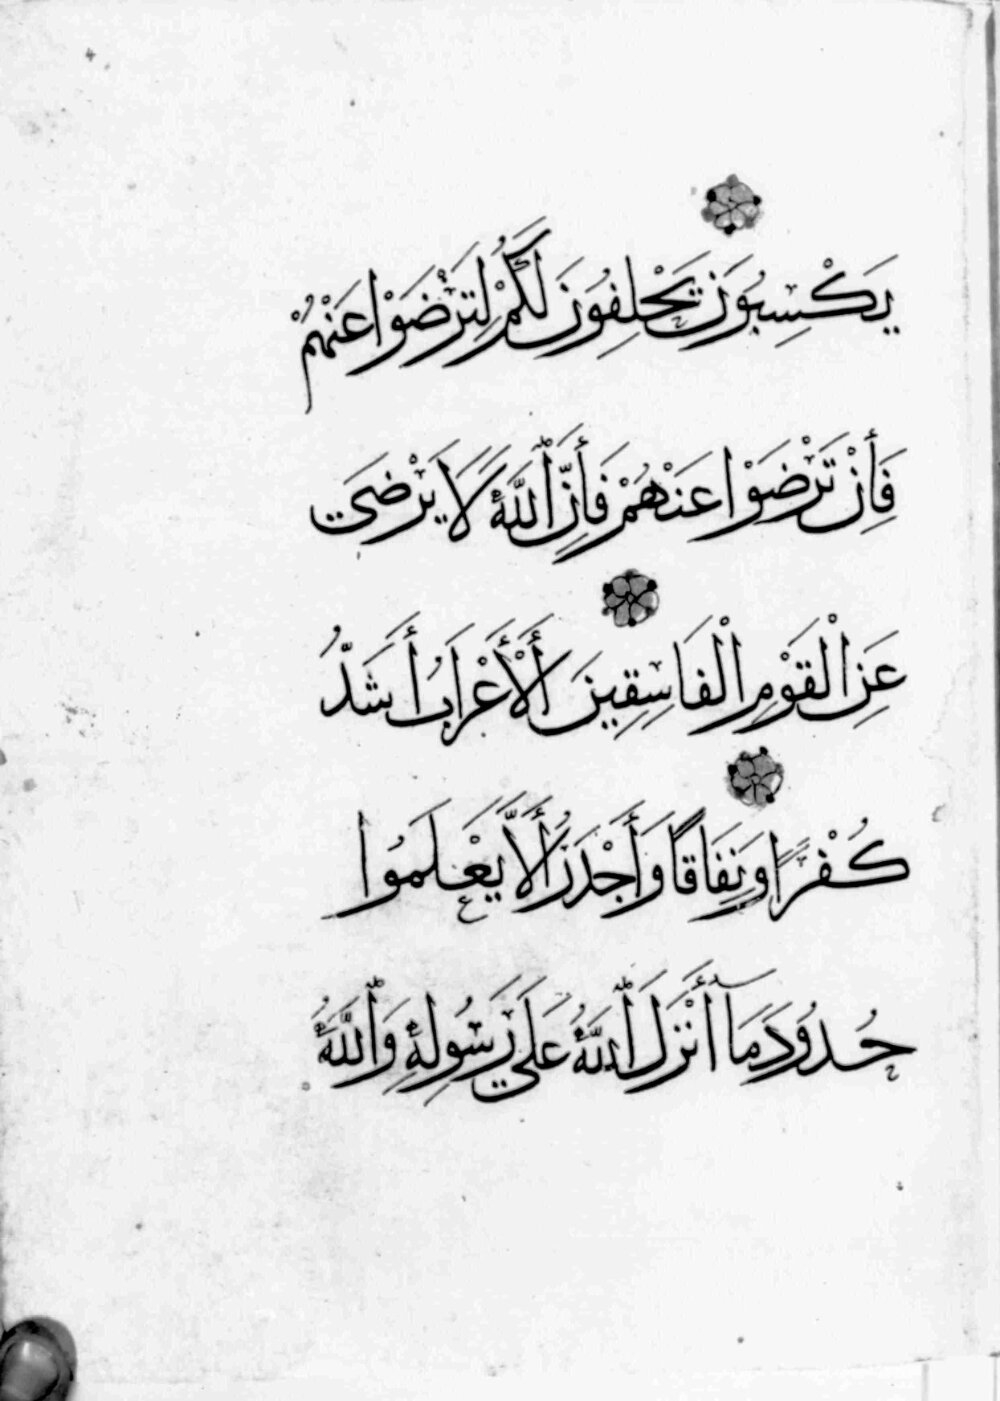 يَكْسِبُونَ يَحْلِفُونَ لَكُمْ لِتَرْضَوْا عَنْهُمْ
فَإِنْ تَرْضَوْا عَنْهُمْ فَإِنَّ اللَّهَ لَا يَرْضَى
عَنِ الْقَوْمِ الْفَاسِقِينَ الْأَعْرَابُ أَشَدُّ
كُفْرًا وَنِفَاقًا وَأَجْدَرُ أَلَّا يَعْلَمُوا
حُدُودَ مَا أَنْزَلَ اللَّهُ عَلَى رَسُولِهِ وَاللَّهُ